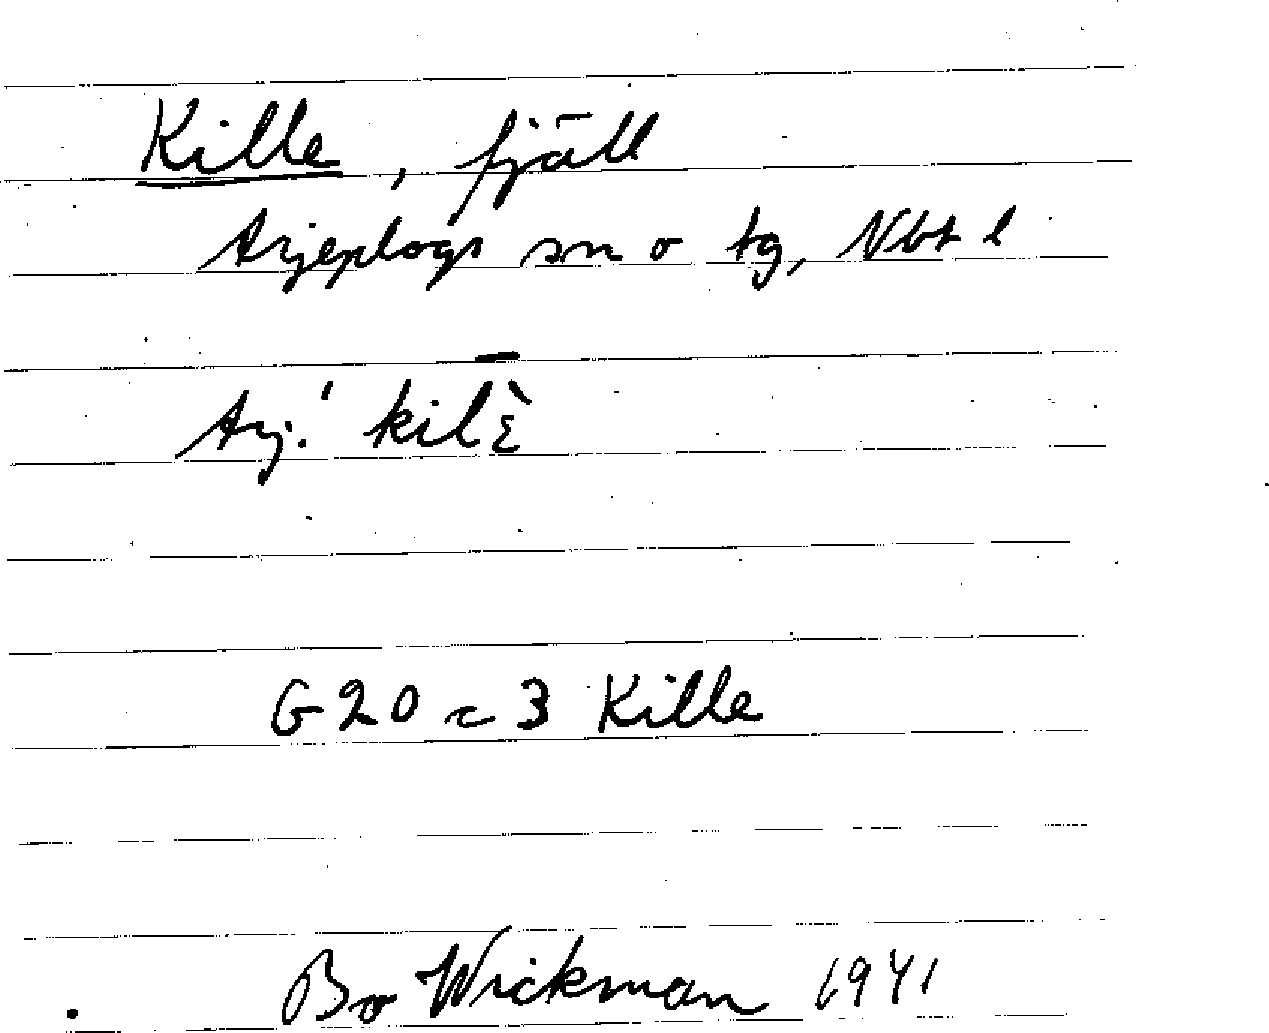 Kille, fjäll
Arjeplogs sn o tg, Nbt l
Arj.' kilɛ̀
G20 c 3 Kille
Bo Wickman 1941